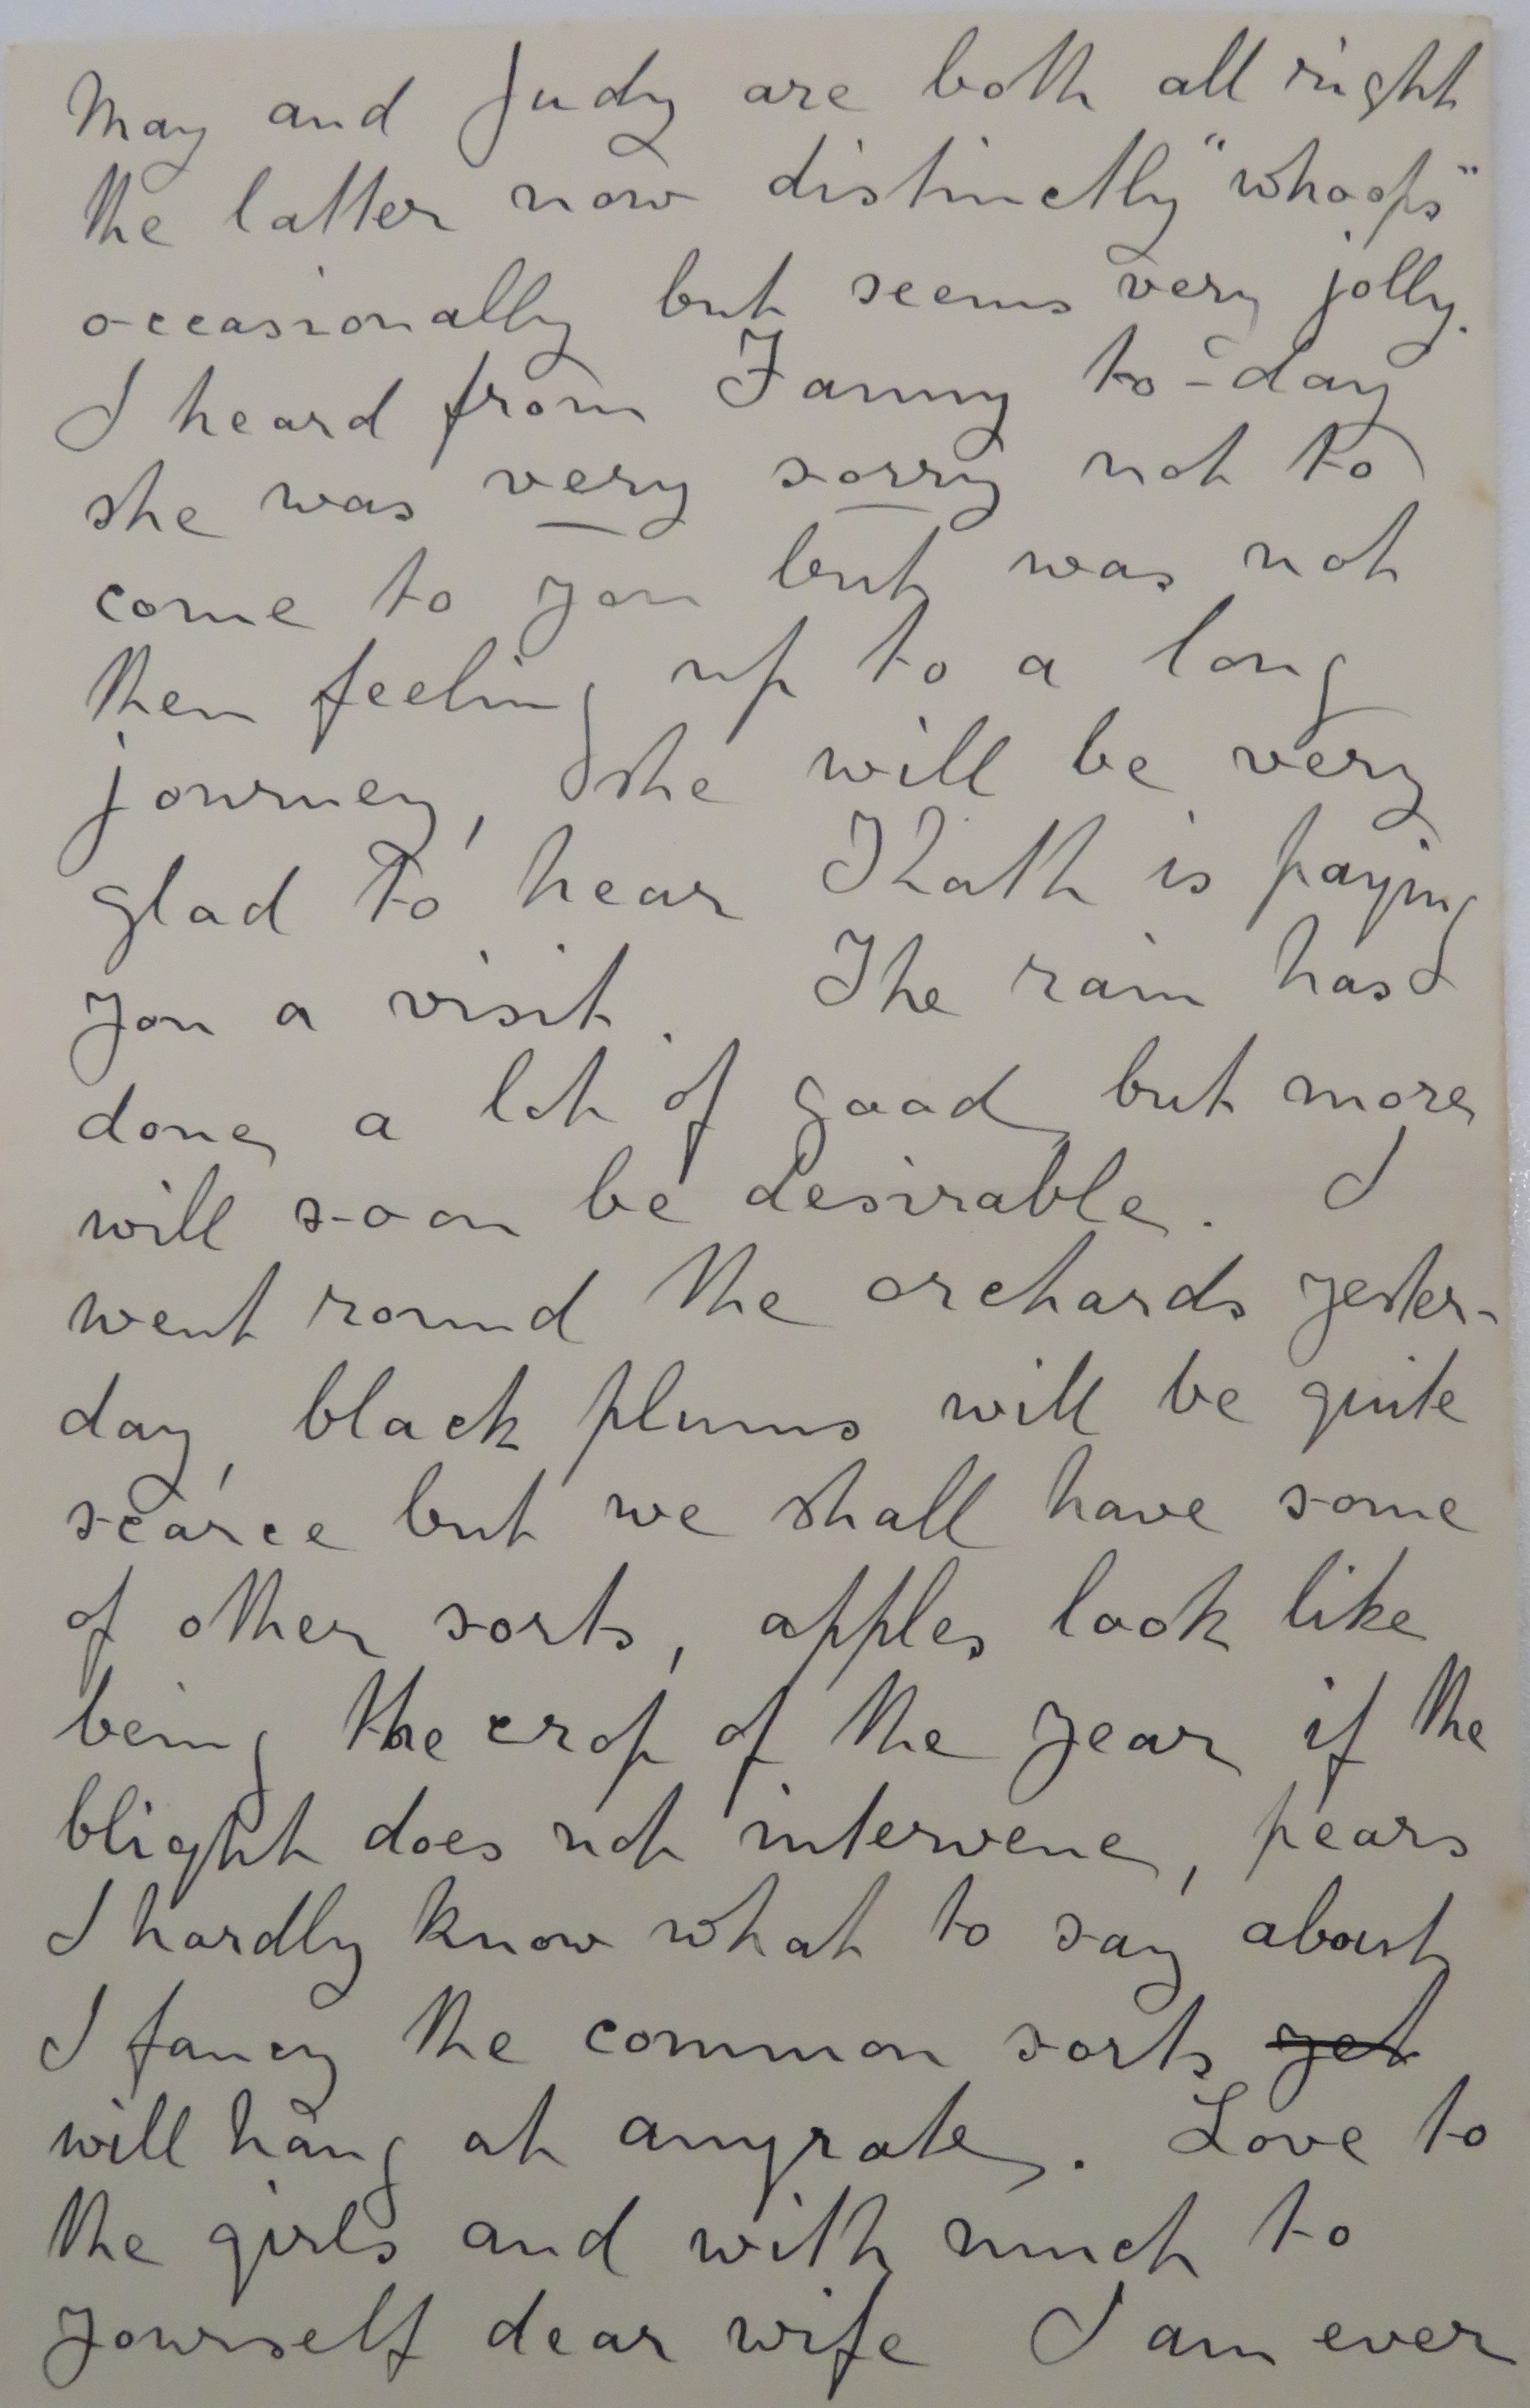 May and Judy are both all right
the latter now distinctly "whoops"
occasionally but seems very jolly.
I heard from Fanny to-day
she was very sorry not to
come to you but was not
then feeling up to a long
journey, she will be very
glad to hear Kath is paying
you a visit. The rain has
done a lot of good but more
will soon be desirable. I
went round the orchards yester-
day, black plums will be quite
scarce but we shall have some
of other sorts, apples look like
being the crop of the year if the
blight does not intervene, pears
I hardly know what to say about
I fancy the common sorts yet
will hang at anyrate. Love to
the girls and with much to
yourself dear wife I am ever